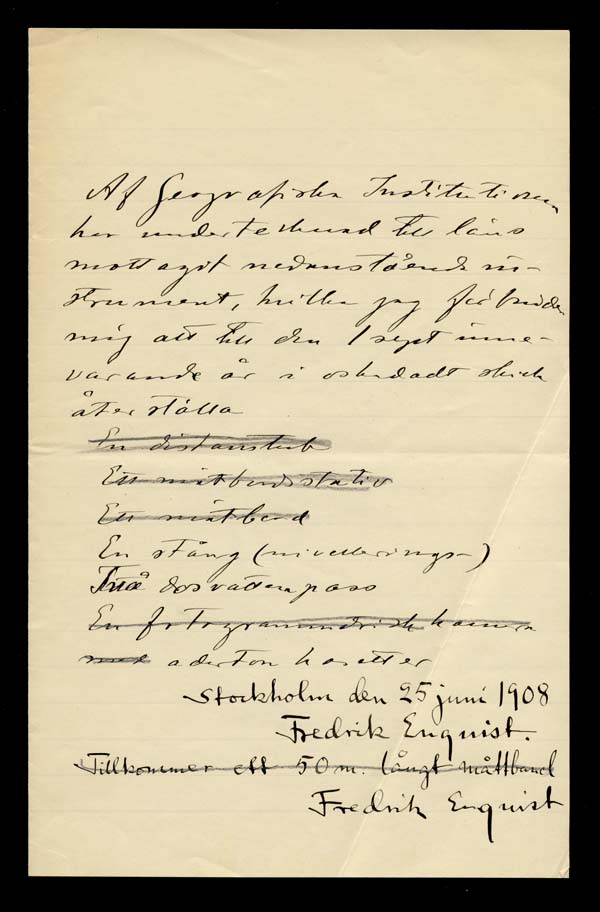 Af Geografiska Institutionen
har undertecknad till låns
mottagit nedanstående in-
strument, hvilka jag förbinder
mig att till den 1 sept inne-
varande år i oskadadt skick
återställa
En distanstub
Ett mätbordsstativ
Ett mätbord
En stång (nivellerings-)
Två dosvattenpass
En fotogrammetrisk kamera
med aderton kasetter
Stockholm den 25 juni 1908
Fredrik Enquist.
Tillkommer ett 50 m. långt måttband
Fredrik Enquist